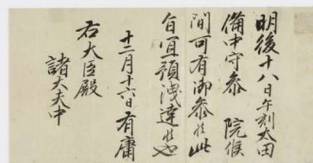 明後十八日午刻太田
備中守参　院候
間可有御参候此
旨宜預洩達候也
十二月十六日有庸
右大臣殿
諸大夫中